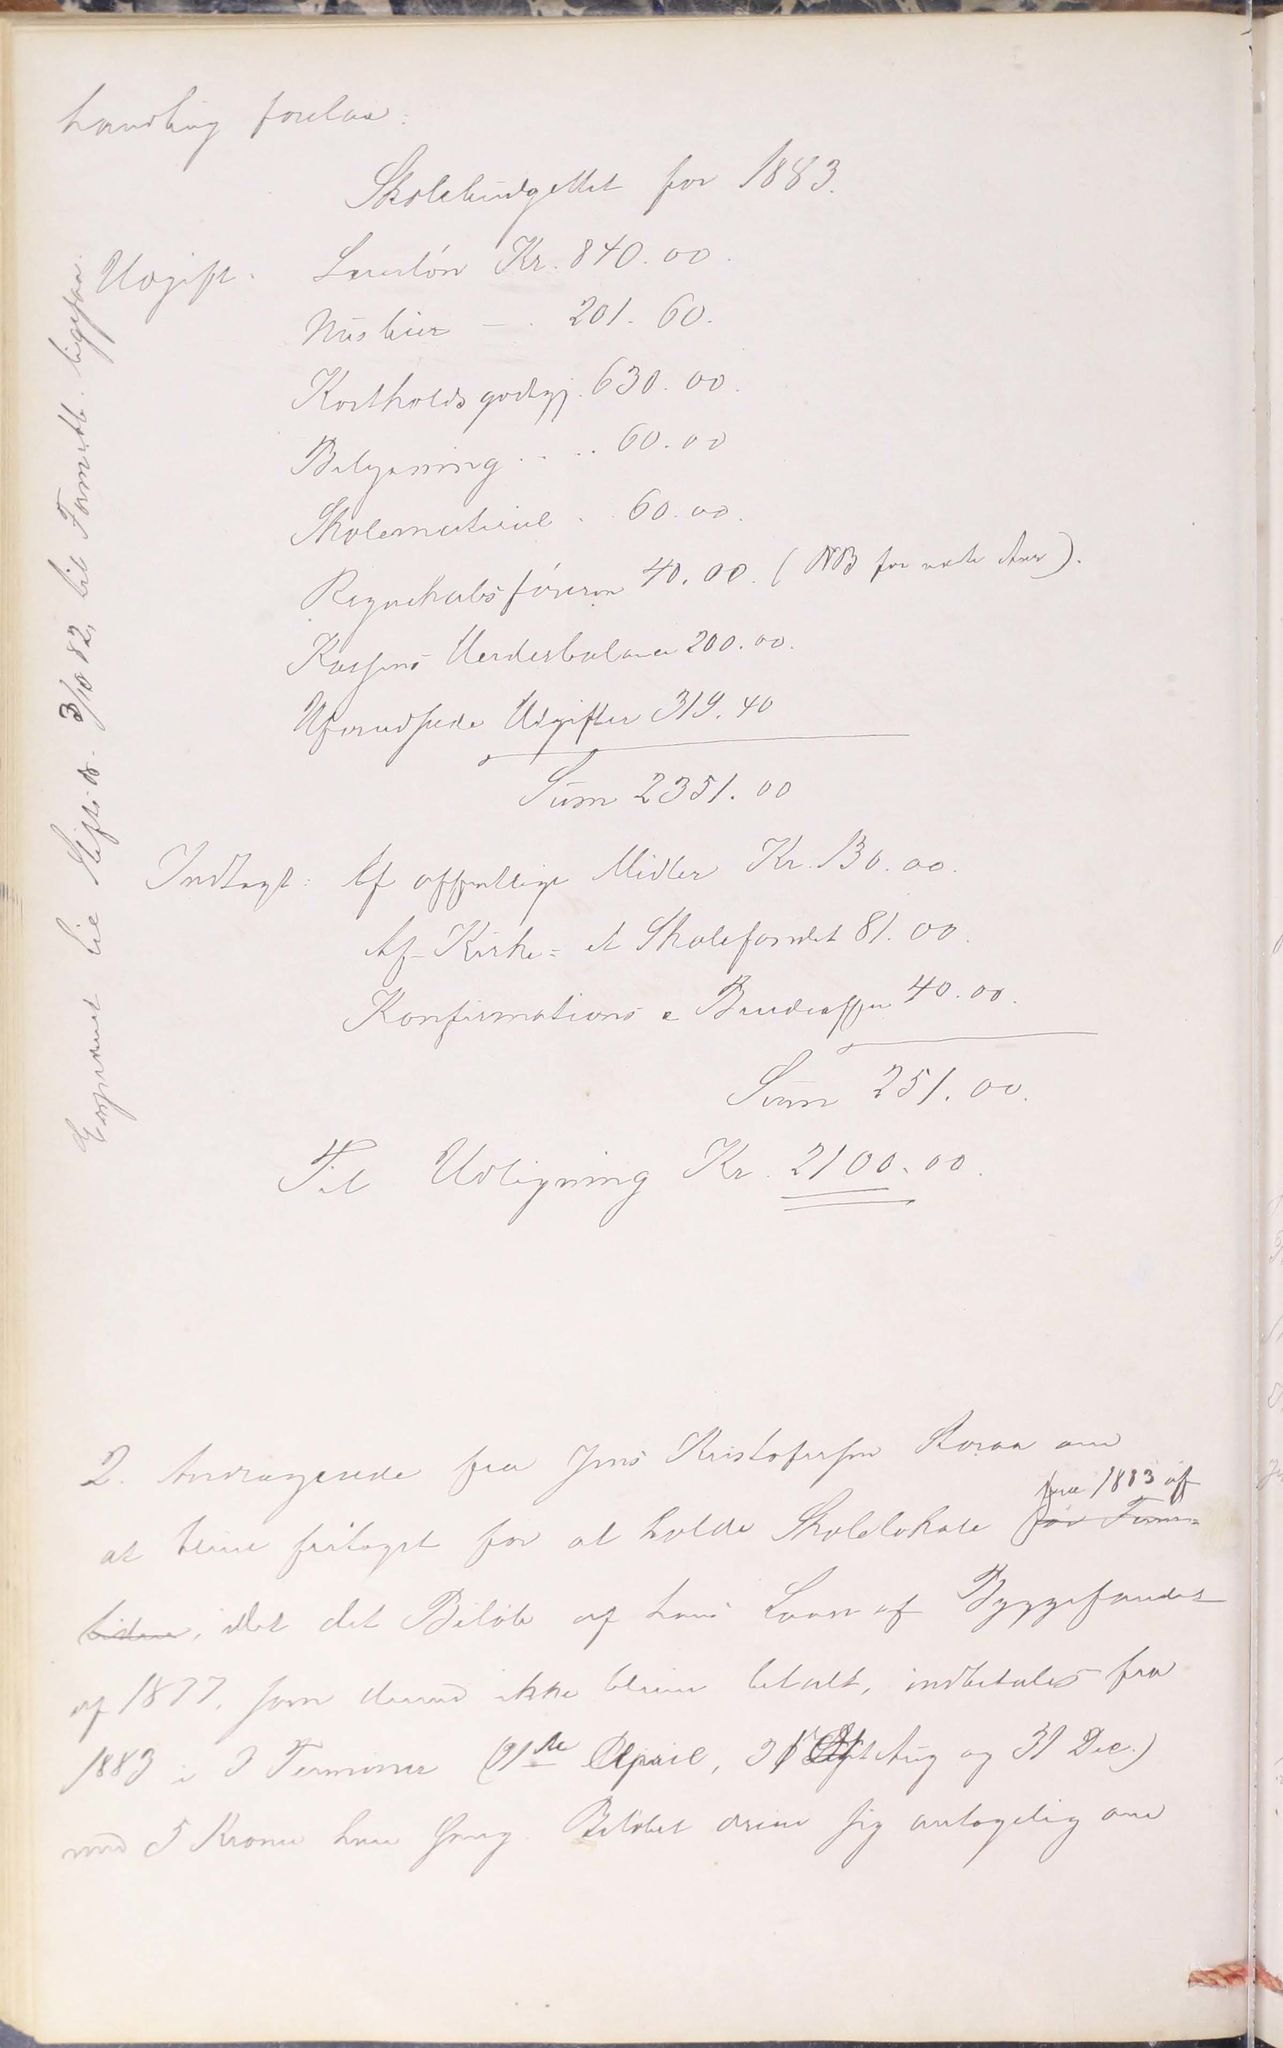 handling forelaa:
Skolebudgettet for 1883.
Udgift. Lærerløn Kr. 840.00.
Husleie — . 201. 60.
Kostholdsgodtgj. 630.00.
Belysning .... 60.00
Skolemateriel .. 60.00.
Regnskabsføreren 40.00. (NB for neste Aar).
Kassens Verdesbalance 200.00.
Uforudsede Udgifter 319.40
Sum 2351.00
Indtægt: Af offentlige Midler Kr. 130.00.
Af Kirke= et Skolefondet 81.00.
Konfirmations e Brudeoffer 40.00.
Sum 251.00.
Til Udligning Kr. 2100.00.
Expederet til Stifts-d. 3/10 82, til Formdb. ligesaa.
2. Andragende fra Jens Kristofersen Roraa om
fra 1883 af
at blive fritaget for at holde Skolelokale for Frem=
tiden, idet det Beløb af hans Laan af Byggefondet
af 1877, som derved ikke bliver betalt, indbetales fra
1883 i 3 Terminer (31te April, 31 Aug og 31 Dec.)
med 5 Kroner hver Gang. Beløbet dreier sig antagelig om